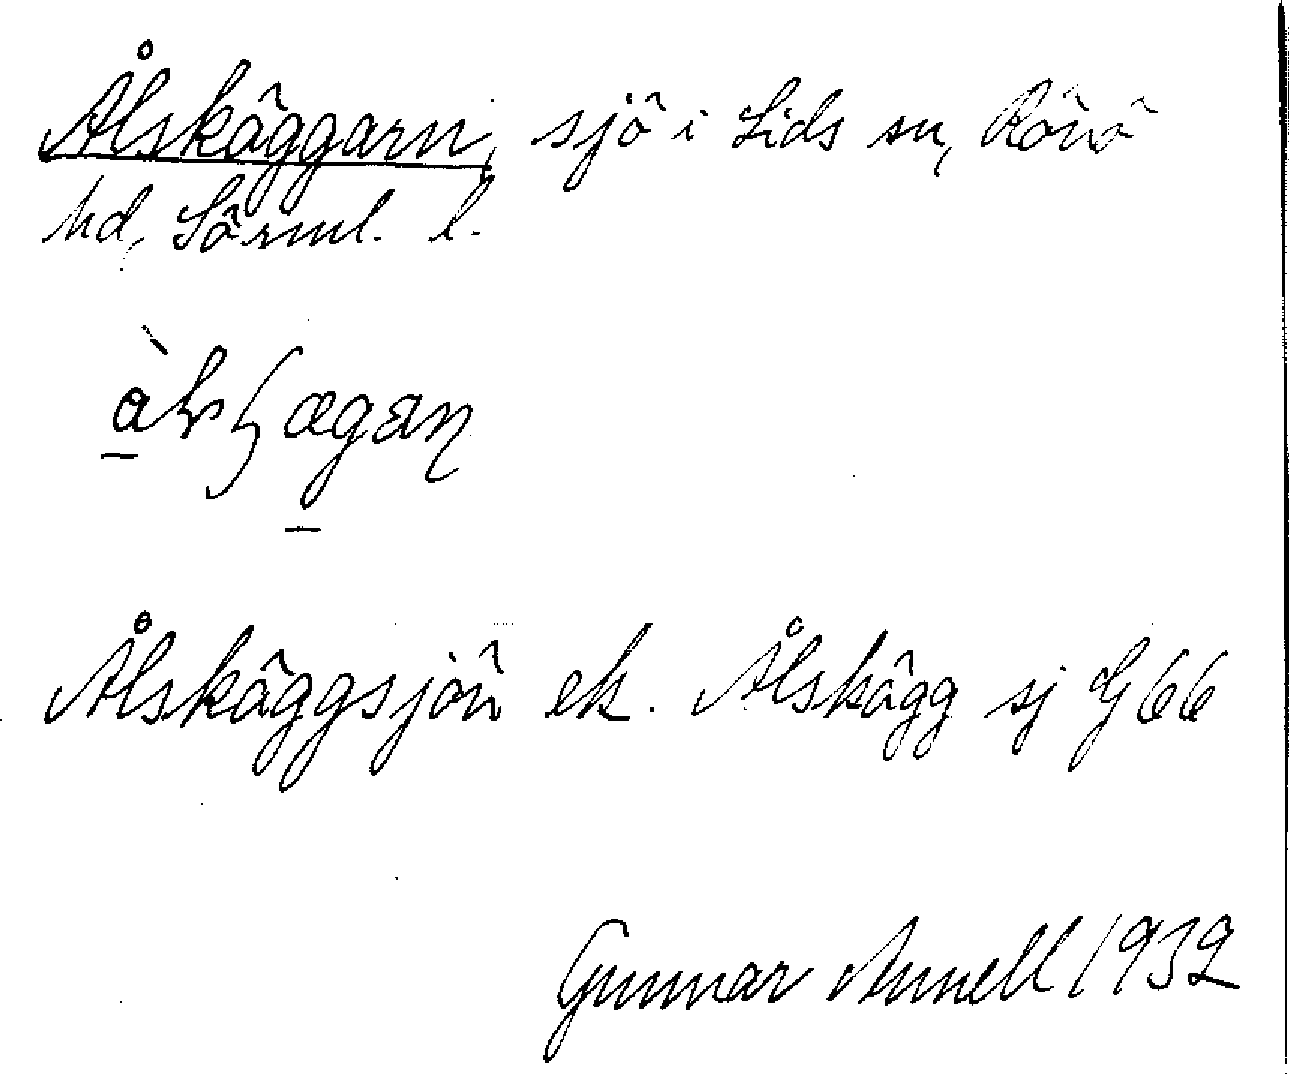 Ålskäggarn, sjö i Lids sn, Rönö
hd, Sörml. l.
Ålskäggsjön ek. Ålskägg sj G 66
Gunnar Annell 1932